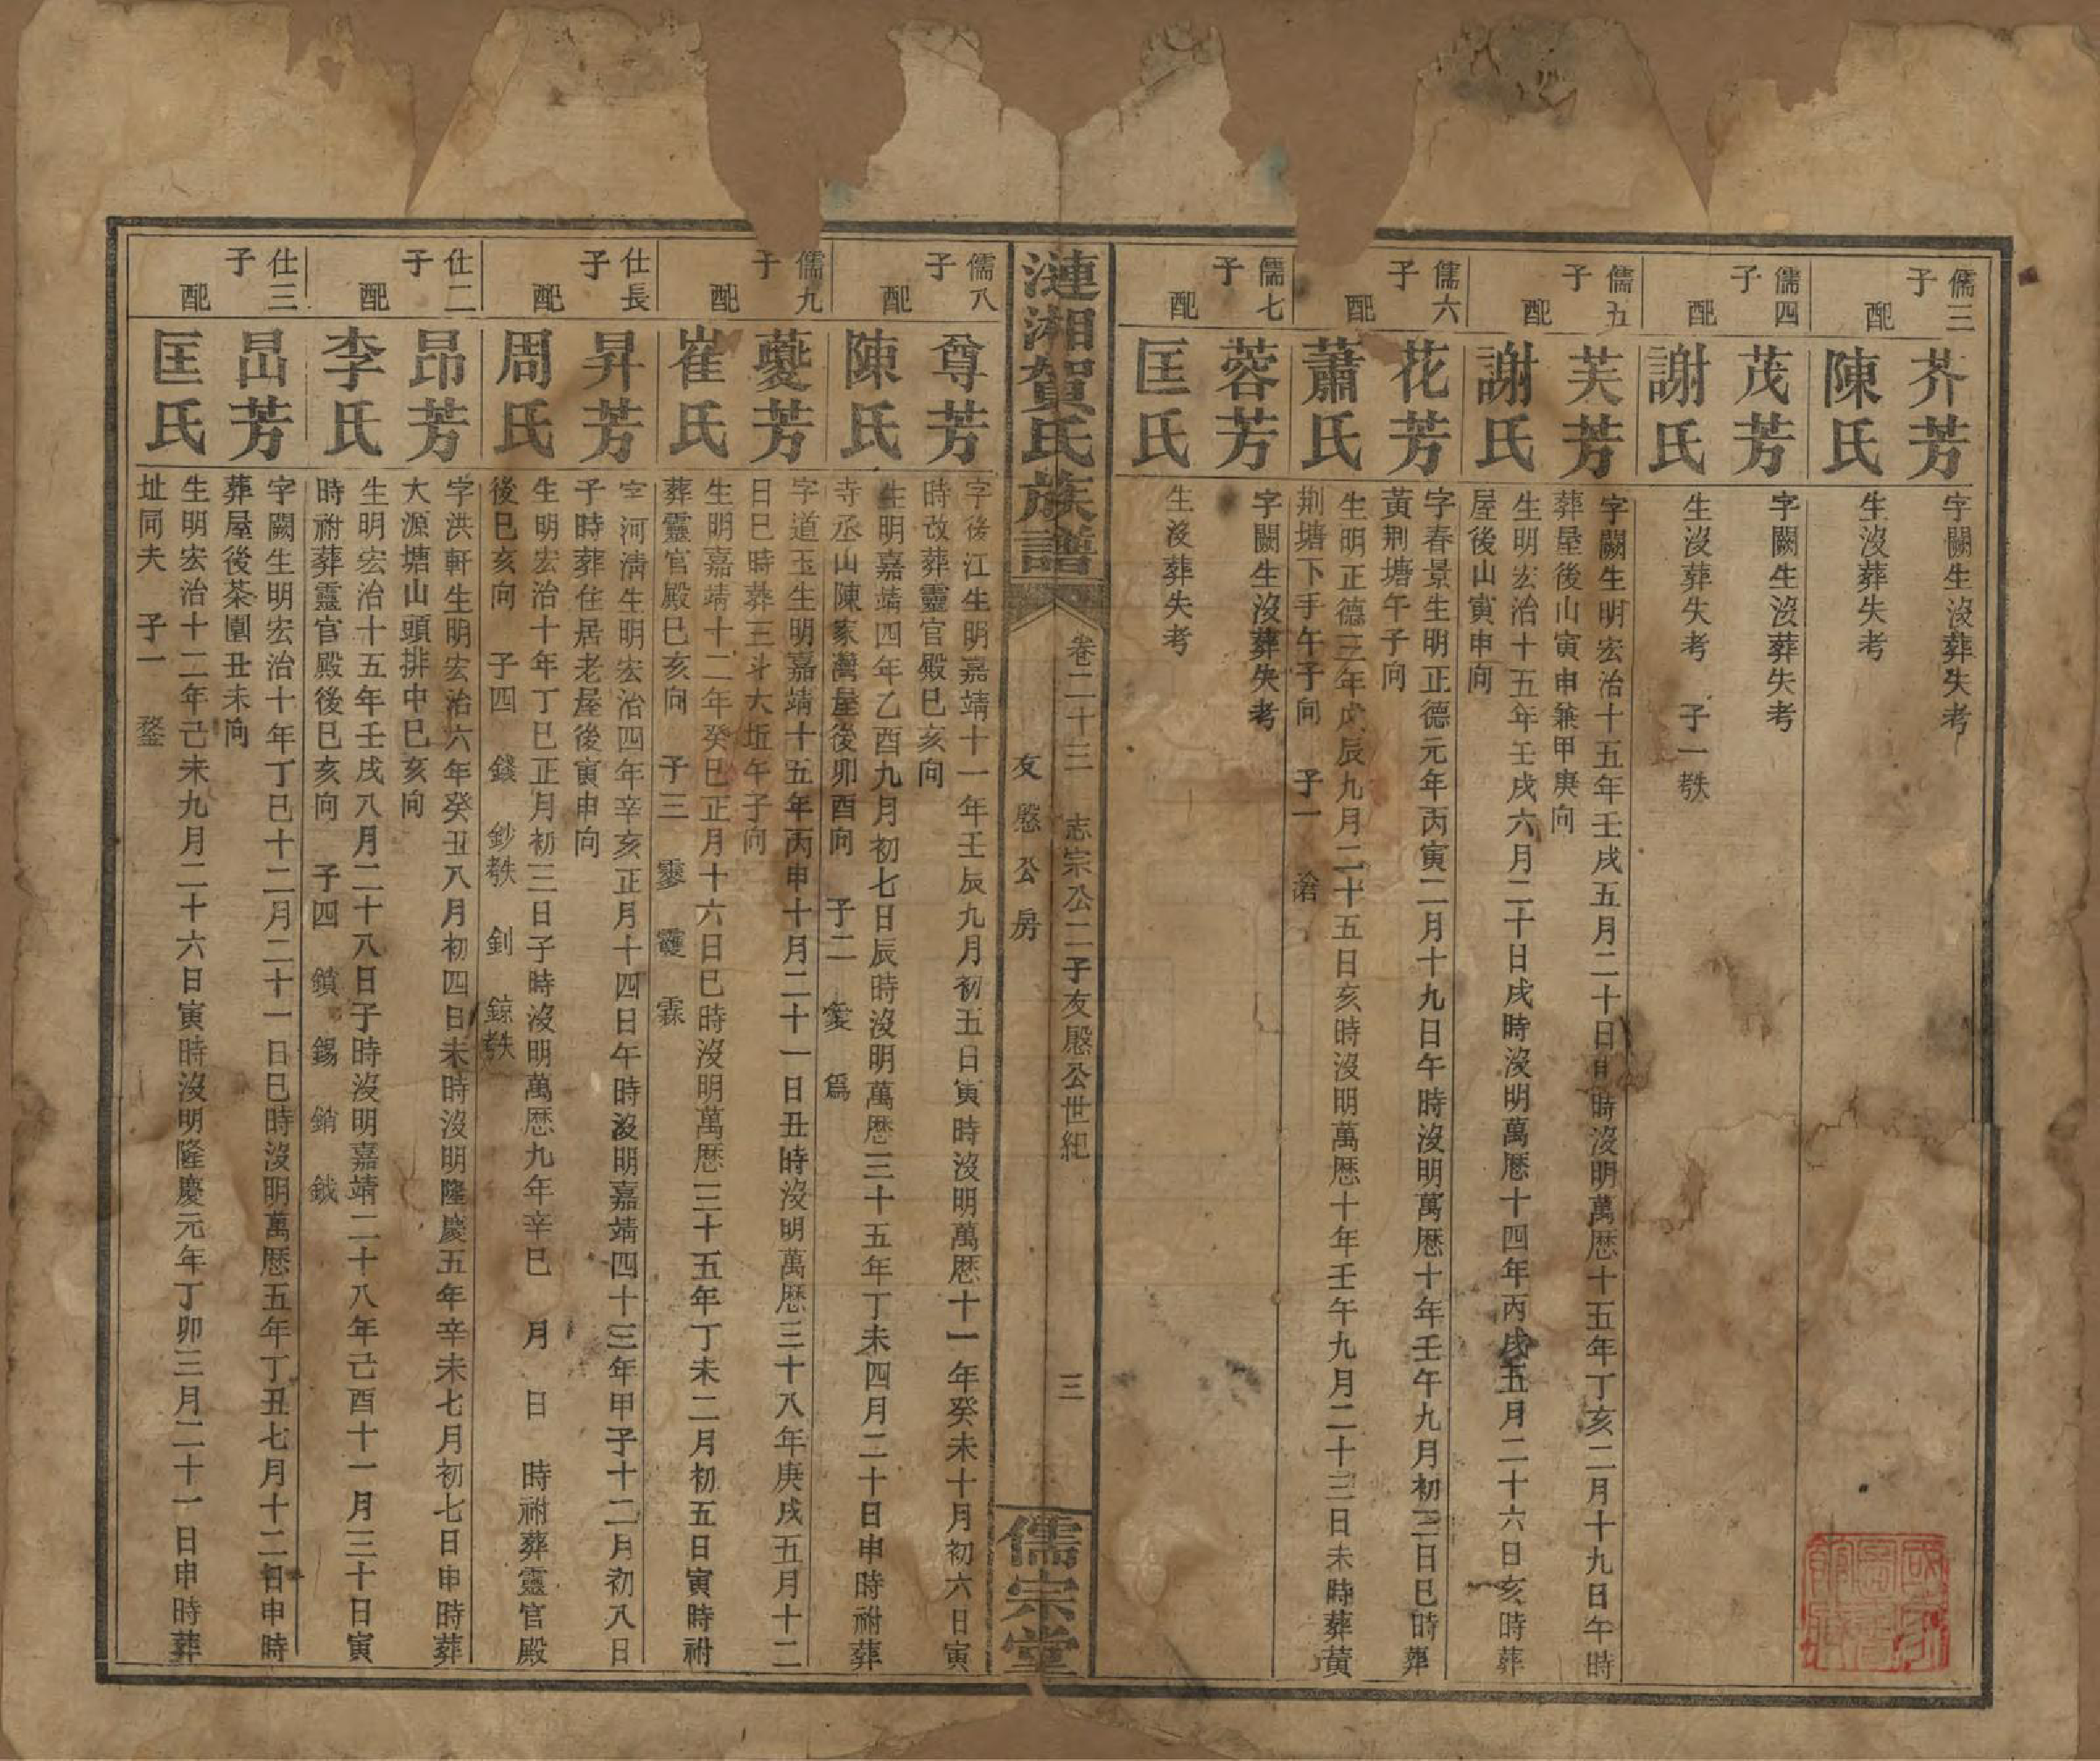 儒三子
芥芳
字闕生沒葬失考
配
陳氏
生沒葬失考
儒四子
茂芳
字闕生沒葬失考
配
謝氏
生沒葬失考 子一 𣨼
儒五子
芙芳
字闕生明宏治十五年壬戌五月二十日 時沒明萬歷十五年丁亥二月十九日午時
葬屋後山寅申兼甲庚向
配
謝氏
生明宏治十五年壬戌六月二十日戌時沒明萬歷十四年丙戌五月二十六日亥時葬
屋後山寅申向
儒六子
花芳
字春景生明正德元年丙寅二月十九日午時沒明萬歷十年壬午九月初三日巳時葬
黃荆塘午子向
配
蕭氏
生明正德三年戊辰九月二十五日亥時沒明萬歷十年壬午九月二十三日未時葬黃
荆塘下手午子向 子一 滄
儒七子
蓉芳
字闕生沒葬失考
配
匡氏
生沒葬失考
漣湘賀氏族譜
卷二十三 志宗公二子友愍公世紀
友愍公房
三
儒宗堂
儒八子
尊芳
字後江生明嘉靖十一年壬辰九月初五日寅時沒明萬歷十一年癸未十月初六日寅
時改葬靈官殿巳亥向
配
陳氏
生明嘉靖四年乙酉九月初七日辰時沒明萬歷三十五年丁未四月二十日申時祔葬
寺丞山陳家灣屋後卯酉向 子二 爲
儒九子
夔芳
字道玉生明嘉靖十五年丙申十月二十一日丑時沒明萬歷三十八年庚戌五月十二
日巳時葬三斗大坵午子向
配
崔氏
生明嘉靖十二年癸巳正月十六日巳時沒明萬歷三十五年丁未二月初五日寅時祔
葬靈官殿巳亥向 子三 霖
仕長子
昇芳
字河清生明宏治四年辛亥正月十四日午時沒明嘉靖四十三年甲子十二月初八日
子時葬住居老屋後寅申向
配
周氏
生明宏治十年丁巳正月初三日子時沒明萬歷九年辛巳 月 日 時祔葬靈官殿
後巳亥向 子四 錢 鈔 釗 鍄
仕二子
昂芳
字洪軒生明宏治六年癸丑八月初四日未時沒明隆慶五年辛未七月初七日申時葬
大源塘山頭排中巳亥向
配
李氏
生明宏治十五年壬戌八月二十八日子時沒明嘉靖二十八年己酉十一月三十日寅
時祔葬靈官殿後巳亥向 子四 鎮 錫 銷 鉞
仕三子
昌芳
字闕生明宏治十年丁巳十二月二十一日巳時沒明萬歷五年丁丑七月十二日申時
葬屋後茶園丑未向
配
匡氏
生明宏治十二年己未九月二十六日寅時沒明隆慶元年丁卯三月二十一日申時葬
址同夫 子一 鍪
國家圖書館藏